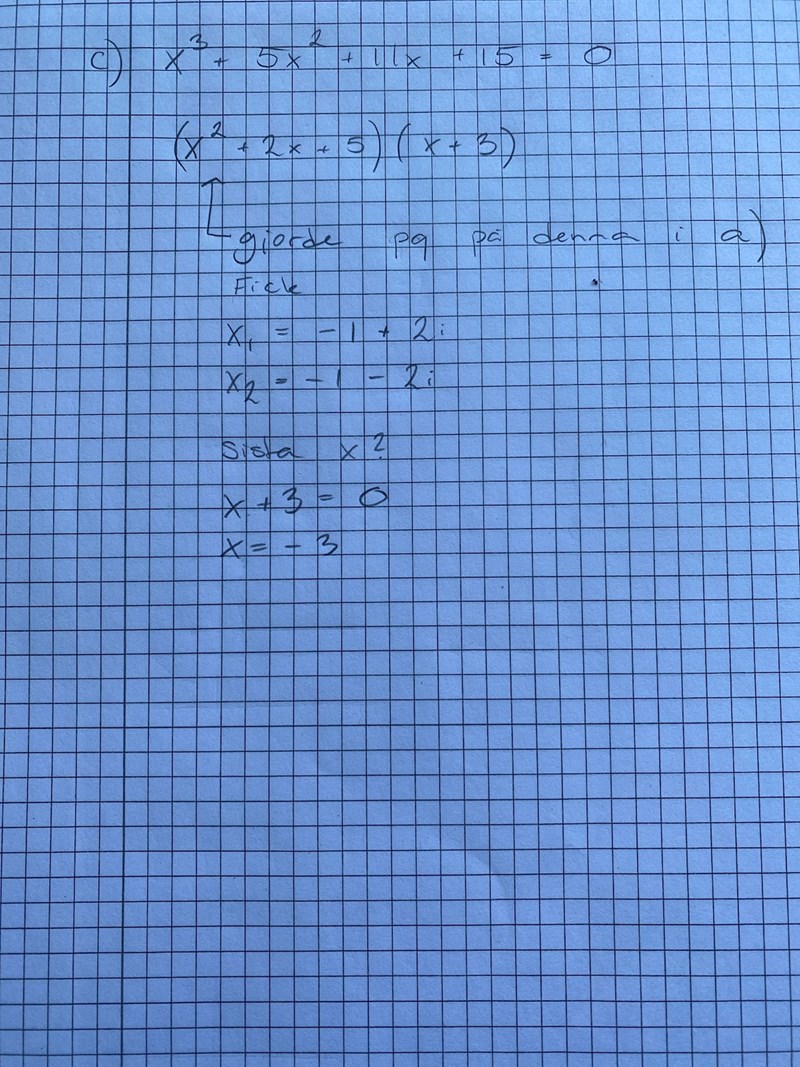 c) x³ + 5x² + 11x + 15 = 0
(x² + 2x + 5)(x + 3)
giorde pq på denna i a)
Fick
x₁ = -1 + 2i
x₂ = -1 - 2i
Sista x?
x + 3 = 0
x = -3